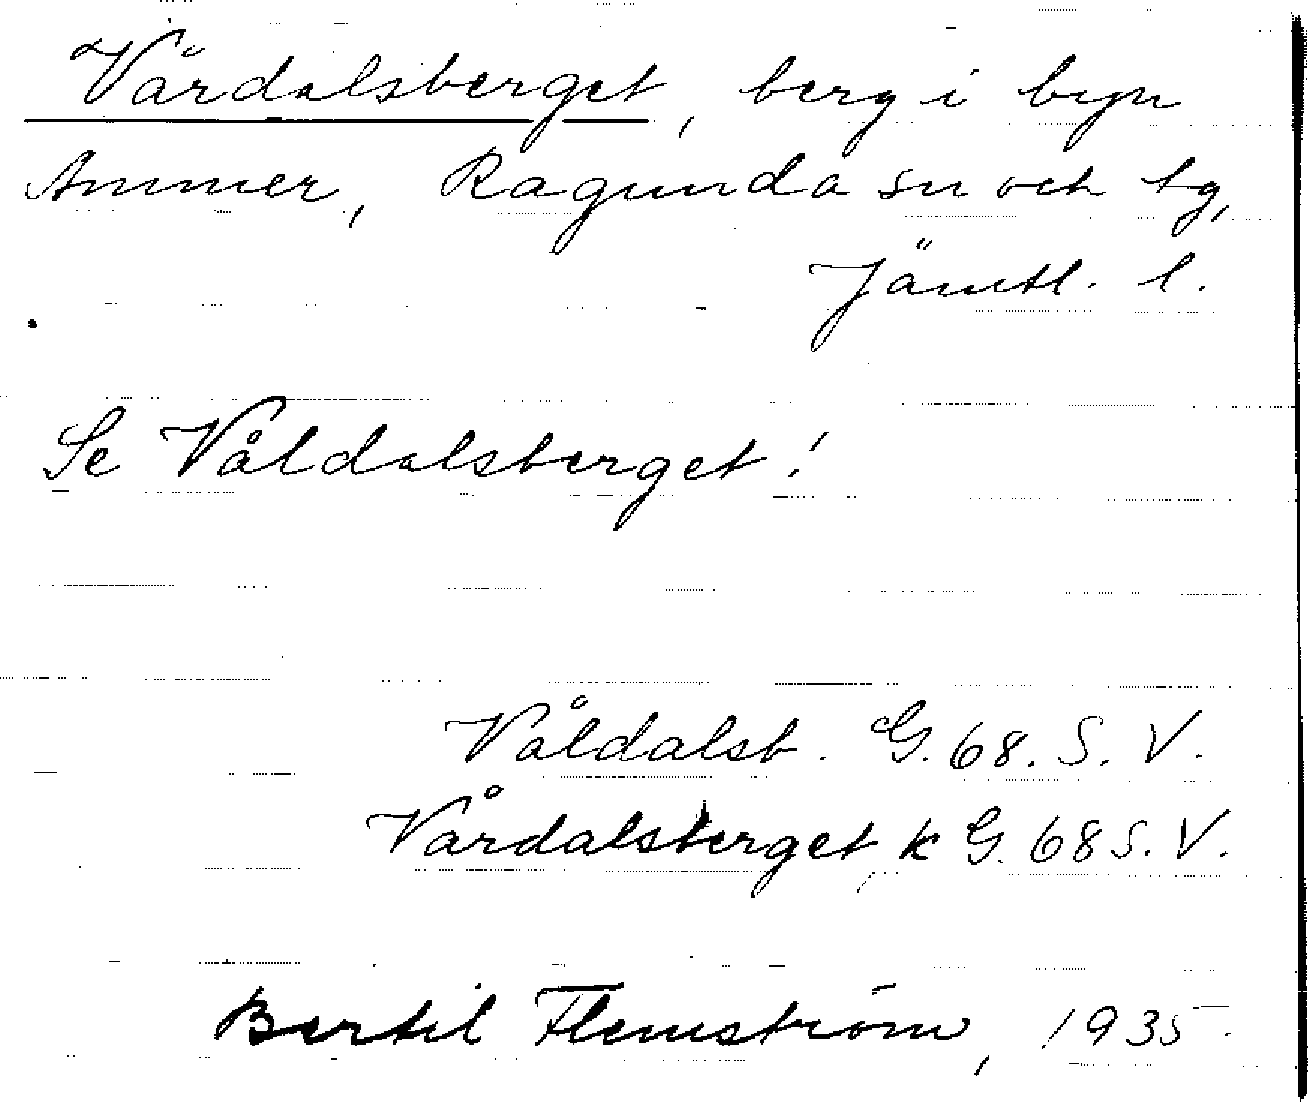 Vårdalsberget, berg i byn
Ammer, Ragunda sn och tg,
Jämtl. l.
Se Våldalsberget!
Våldalsb. G. 68. S. V.
Vårdalsberget, k G. 68 S. V.
Bertil Flemström, 1935.